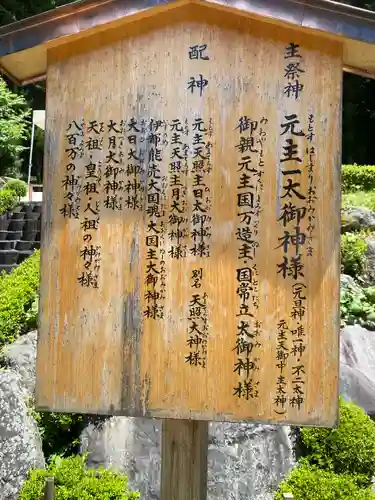 主祭神
元主一大御神様
(元旦神・唯一神・不二太神
元主天御中主太神)
御親元主国万造主・国常立大御神様
配神
元主天照主日大御神様 別名 天照大神様
元主天照主月大御神様
伊都能売大国魂大国主大御神様
大日大御神様
大月大御神様
天祖・皇祖・人祖の神々様
八百万の神々様